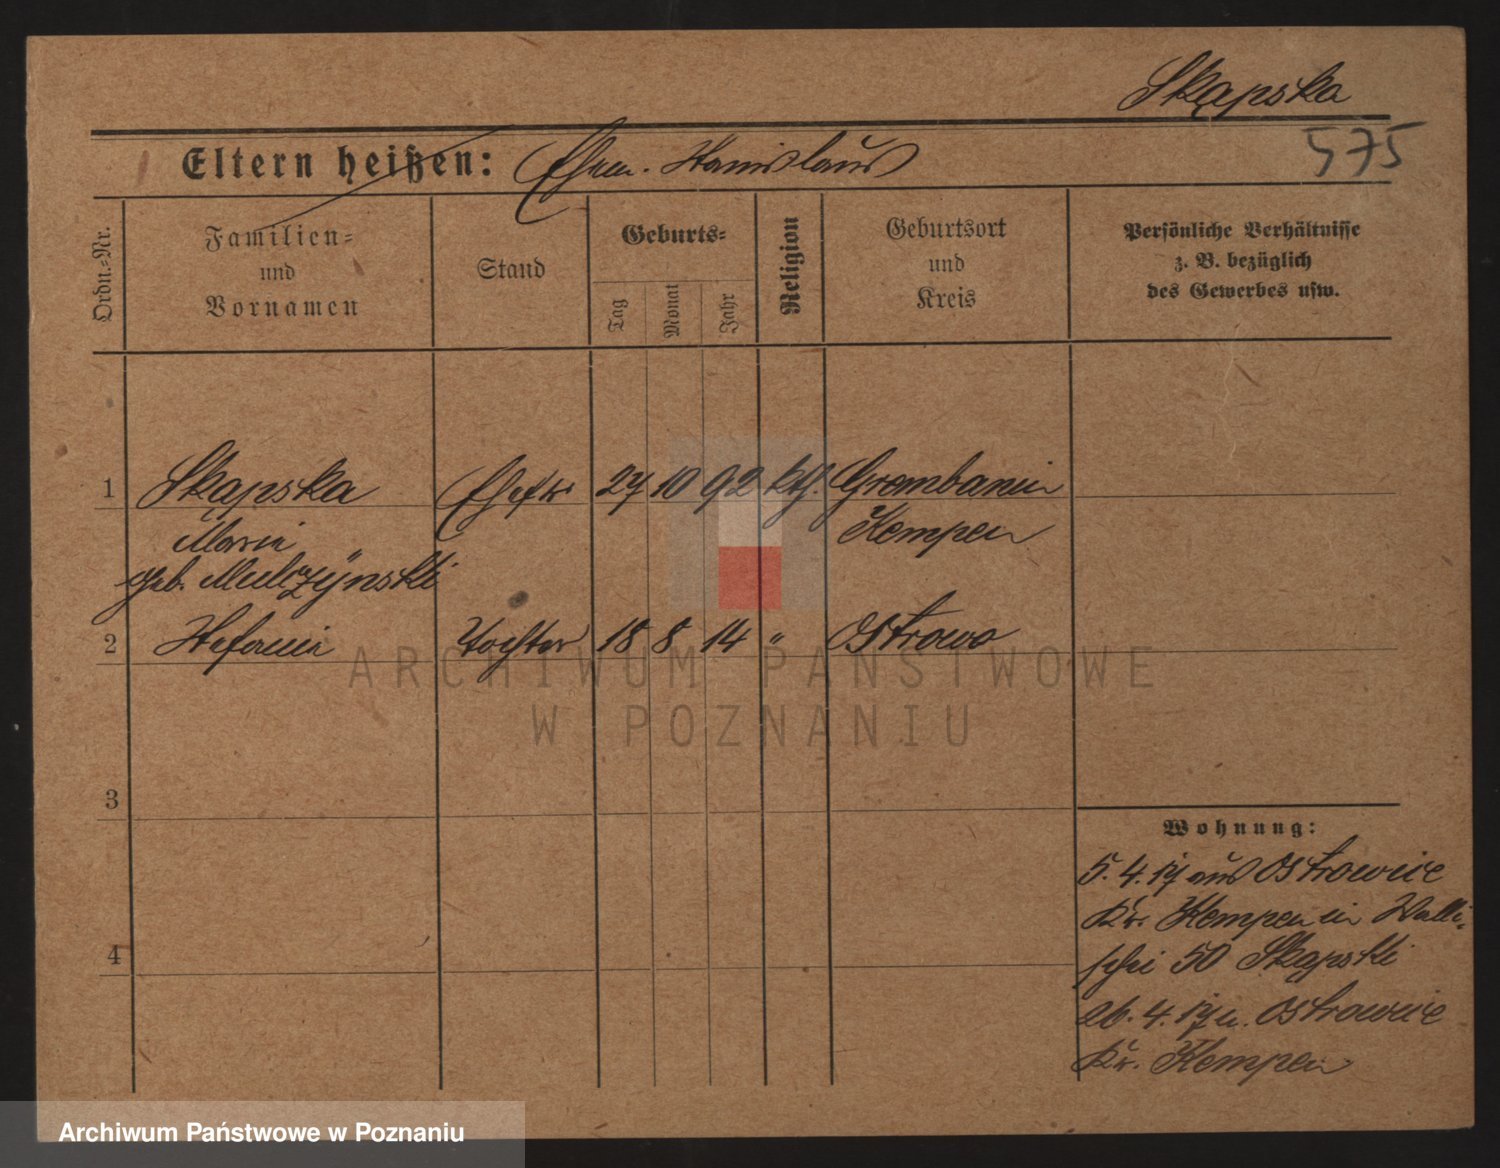 Skąpska
575
Eltern heißen: Ehem. Stanislaus
Ordn.-Nr.
Familien-
und
Vornamen
Stand
Geburts-
Tag
Monat
Jahr
Religion
Geburtsort
und
Kreis
Persönliche Verhältnisse
z. B. bezüglich
des Gewerbes usw.
1 Skąpska Ehefr. 27 10 92 kth. Grembanin
Maria Kempen
geb. Mulczynski
2 Stefania Tochter 18 8 14 " Ostrowo
3
4
Wohnung:
5.4.17 aus Ostrowiec
Kr. Kempen in Walli-
schei 50 Skąpski
26.4.17 n. Ostrowiec
Kr. Kempen
ARCHIWUM PAŃSTWOWE
W POZNANIU
Archiwum Państwowe w Poznaniu